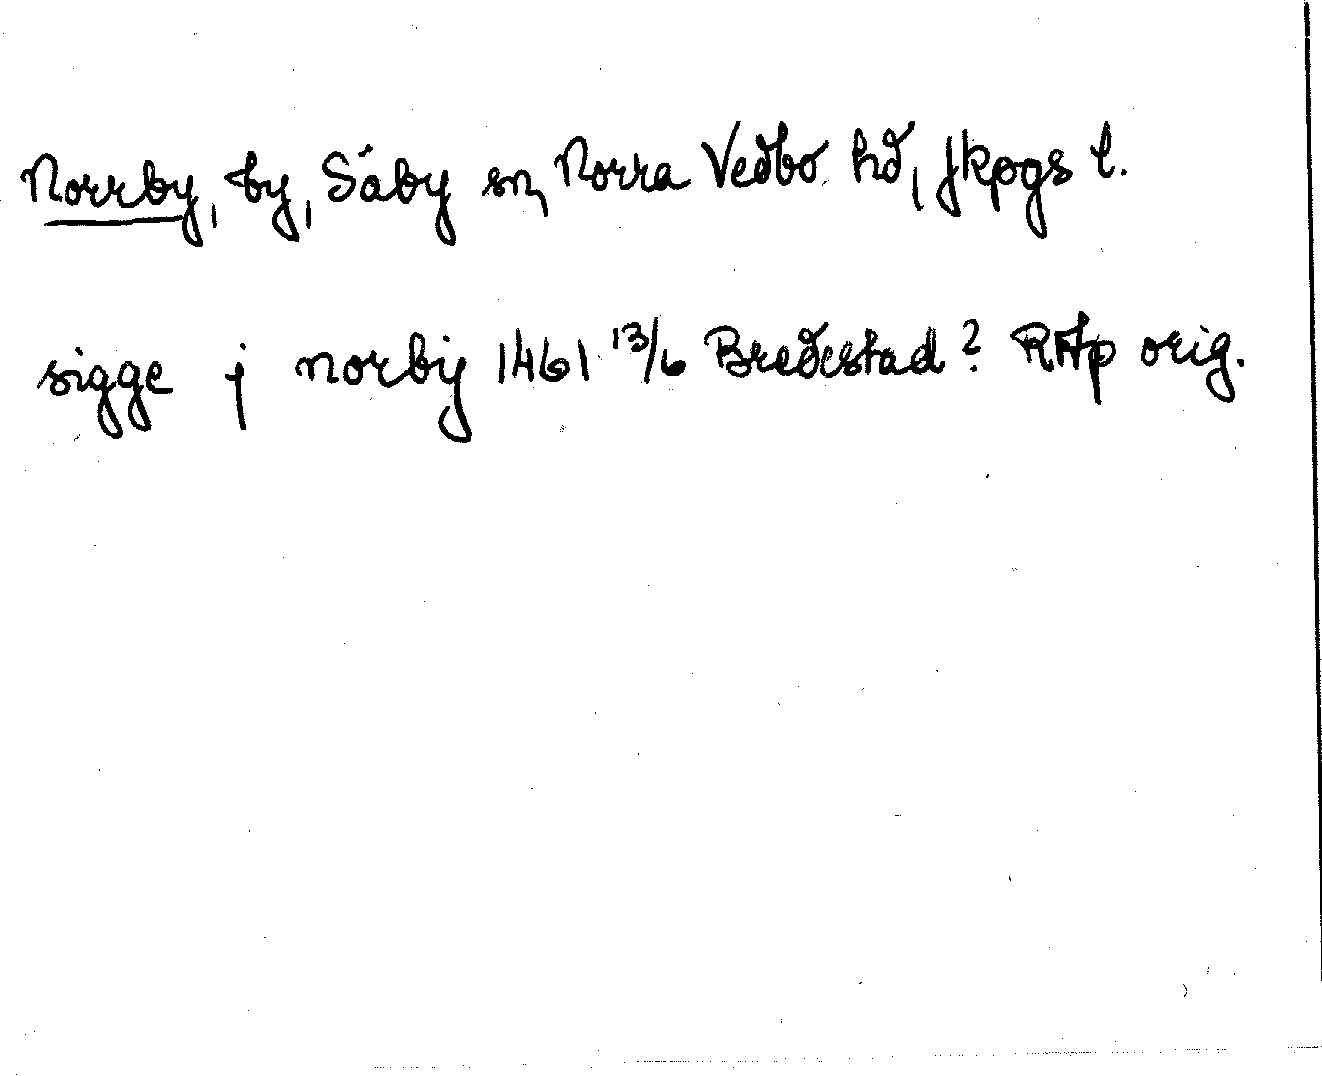 Norrby, by, Säby sn, Norra Vedbo hd, Jkpgs l.
sigge j norby 1461 13/6 Bredestad? RAp orig.